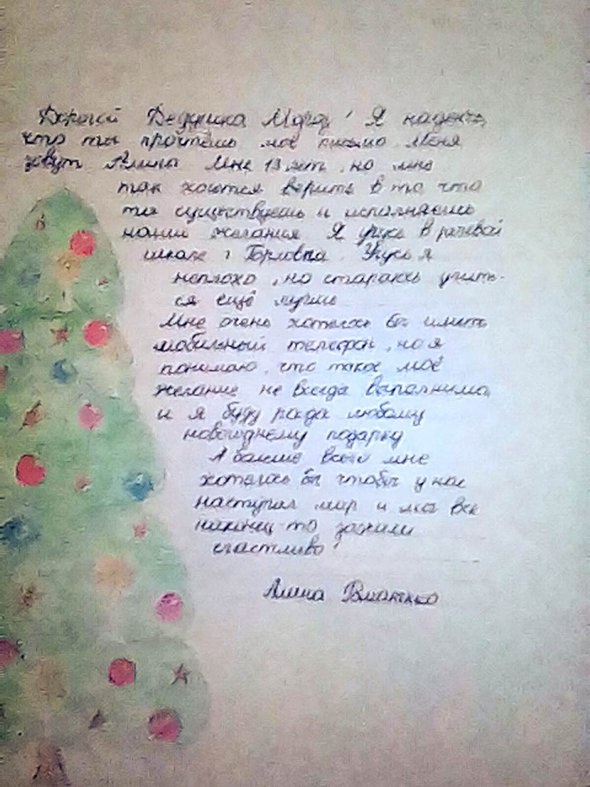 Дорогой Дедушка Мороз! Я надеюсь,
что ты прочтёшь моё письмо. Меня
зовут Алина. Мне 13 лет, но мне
так хочется верить в то что
ты существуешь и исполняешь
наши желания. Я учусь в
школе г. Горловка. Учусь я
неплохо, но стараюсь учить-
ся ещё лучше
Мне очень хотелось бы иметь
мобильный телефон, но я
понимаю, что такое моё
желание не всегда выполнимо,
и я буду рада любому
новогоднему подарку
А больше всего мне
хотелось бы чтобы у нас
наступил мир и мы все
наконец то зажили
счастливо!
Алина